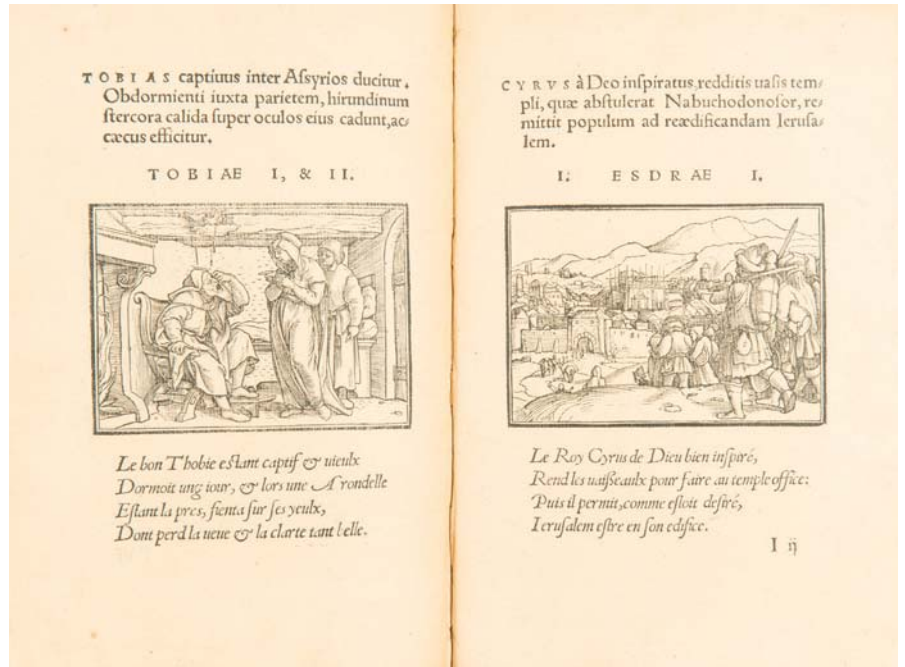 TOBIAS captiuus inter Aſsyrios ducitur.
Obdormienti iuxta parietem, hirundinum
ſtercora calida ſuper oculos eius cadunt, ac⸗
cæcus efficitur.
TOBIAE I, & II.
Le bon Thobie eſtant captif & uieulx
Dormoit ung iour, & lors une Arondelle
Eſtant la pres, fienta ſur ſes yeulx,
Dont perd la ueue & la clarte tant belle.
CYRVS à Deo inſpiratus, redditis uaſis tem⸗
pli, quæ abſtulerat Nabuchodonoſor, re⸗
mittit populum ad reædificandam Ieruſa⸗
lem.
I. ESDRAE I.
Le Roy Cyrus de Dieu bien inſpiré,
Rend les uaiſſeaulx pour faire au temple office:
Puis il permit, comme eſtoit deſiré,
Ieruſalem eſtre en ſon edifice.
I ij